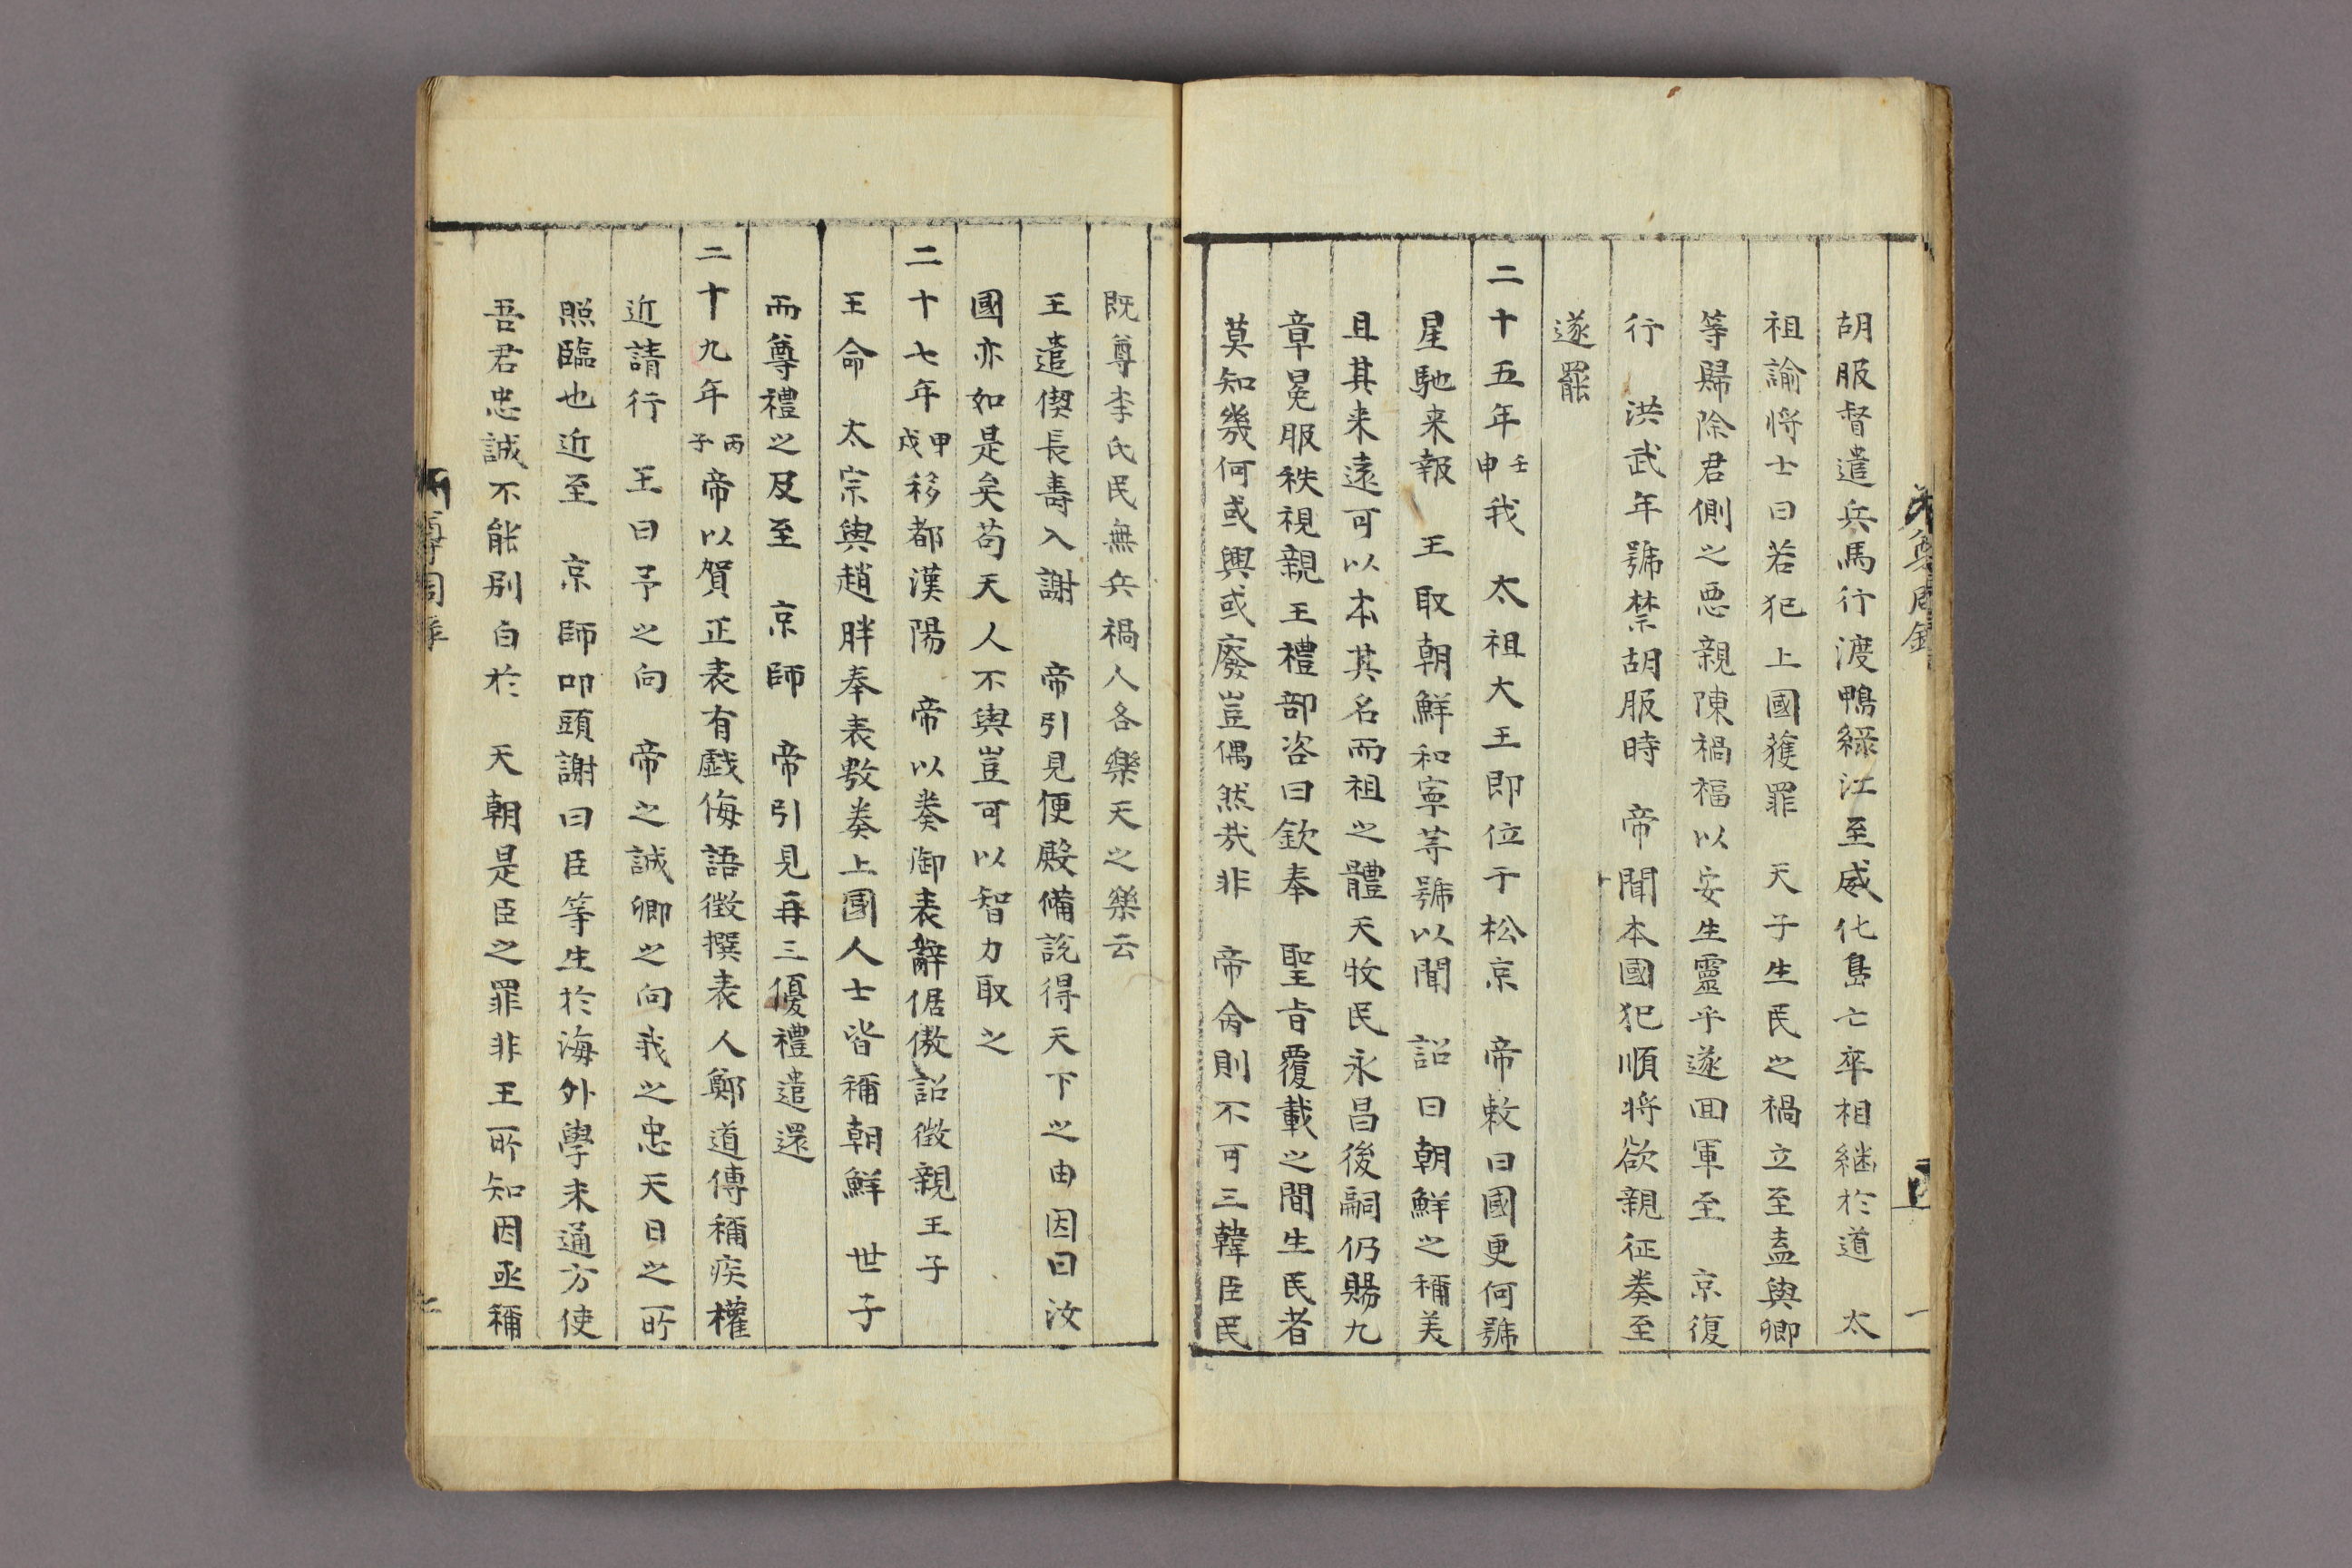 胡服督遣兵馬行渡鴨綠江至威化島亡卒相継於道　太
祖諭將士曰若犯上國獲罪　天子生民之禍立至盍與卿
等歸除君側之悪親陳禍福以安生靈乎遂回軍至　京復
行　洪武年號禁胡服時　帝聞本國犯順将欲親征奏至
遂罷
二十五年壬申我　太祖大王即位于松京　帝敕曰國更何號
星馳来報　王取朝鮮和寧等號以聞　詔曰朝鮮之稱美
且其来遠可以本其名而祖之體天牧民永昌後嗣仍賜九
章冕服秩視親王禮部咨曰欽奉　聖旨覆載之間生民者
莫知幾何或興或廢豈偶然哉非　帝命則不可三韓臣民
既尊李氏民無兵禍人各樂天之樂云
王遣偰長壽入謝　帝引見便殿備說得天下之由因曰汝
國亦如是矣苟天人不與豈可以智力取之
二十七年甲戌移都漢陽　帝以奏御表辭倨傲詔徴親王子
王命　太宗與趙胖奉表敷奏上國人士皆稱朝鮮　世子
而尊禮之及至　京師　帝引見再三優禮遣還
二十九年丙子帝以賀正表有戱侮語徴撰表人鄭道傳稱疾權
近請行　王曰予之向　帝之誠卿之向我之忠天日之所
照臨也近至　京師叩頭謝曰臣等生於海外學未通方使
吾君忠誠不能别白於　天朝是臣之罪非王所知因亟稱